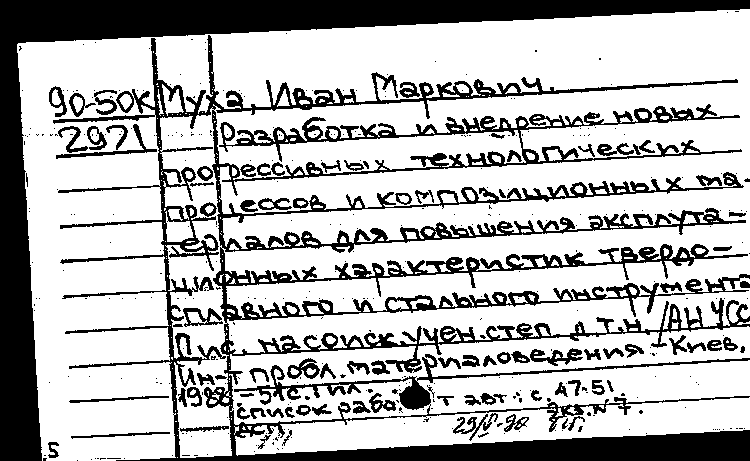 90-50К Муха, Иван Маркович.
2971 Разработка и внедрение новых
прогрессивных технологических
процессов и композиционных ма-
териалов для повышения эксплута-
ционных характеристик твердо-
сплавного и стального инструмента
Дис. на соиск. учен. степ. д.т.н. /АН УСС
Ин-т пробл. материаловедения. - Киев,
1988 - 51с. 1 ил.
список рабо т авт.: с. 47-51.
ДСП. Экз. N 7.
5